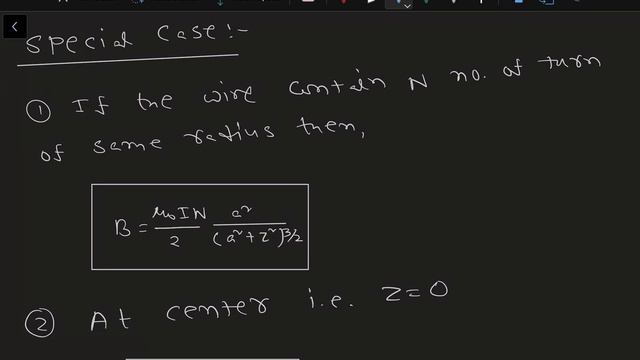 Special Case :-
① If the wire contain N no. of turn
of same radius then,
B = μ₀IN/2 a²/(a²+z²)^3/2
② At center i.e. z=0